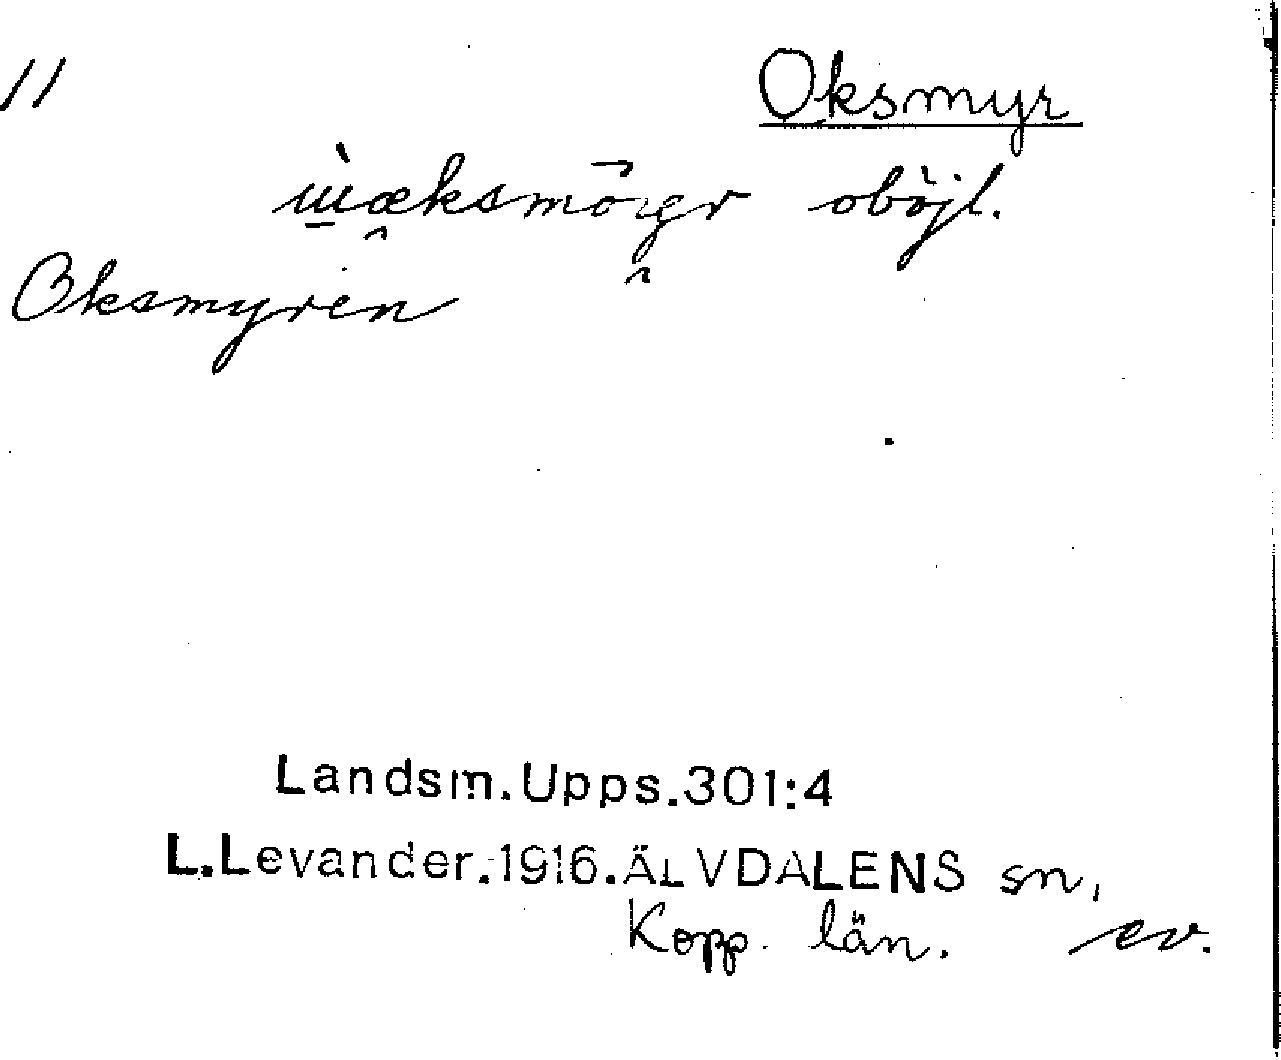 11 Oksmyr
oböjl.
Oksmyren
Landsm.Upps.301:4
L.Levander.1916.ÄLVDALENS sn,
Kopp. län. ev.